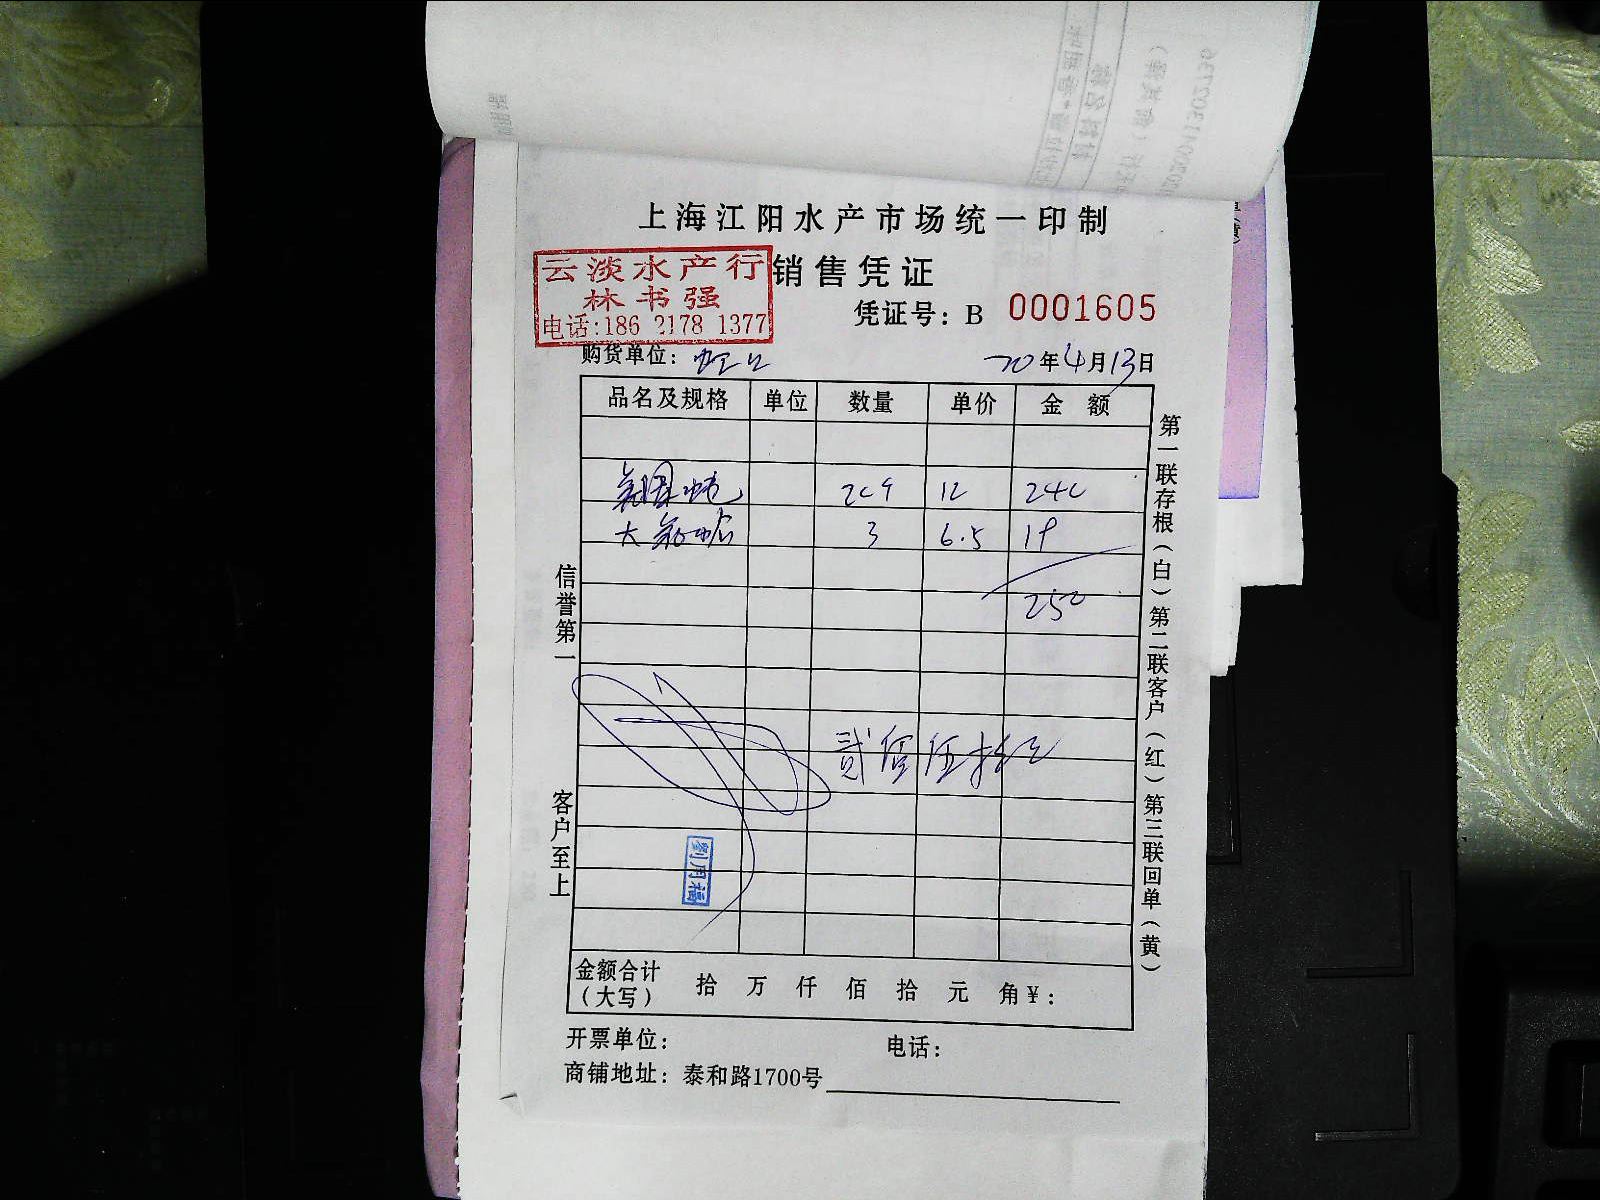 上海江阳水产市场统一印制
销售凭证
云淡水产行
林书强
电话:186 2178 1377
凭证号：B 0001605
购货单位： 20年4月13日
品名及规格 单位 数量 单价 金 额
12 240
大 3 6.5 19
250
贰佰伍拾元
信誉第一
客户至上
劉用福
第一联存根（白）第二联客户（红）第三联回单（黄）
金额合计（大写） 拾 万 仟 佰 拾 元 角¥：
开票单位： 电话：
商铺地址：泰和路1700号